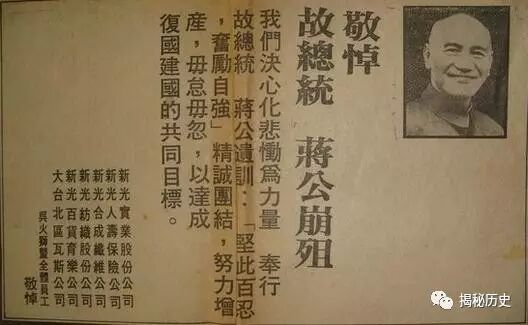 敬悼
故總統　蔣公崩殂
我們決心化悲慟為力量　奉行
故總統　蔣公遺訓：「堅此百忍
，奮勵自強」精誠團結，努力增
產，毋怠毋忽，以達成
復國建國的共同目標。
新光實業股份公司
新光人壽保險公司
新光合成纖維公司
新光紡織股份公司
新光百貨育樂公司
大台北區瓦斯公司
吳火獅暨全體員工
敬悼
揭秘历史